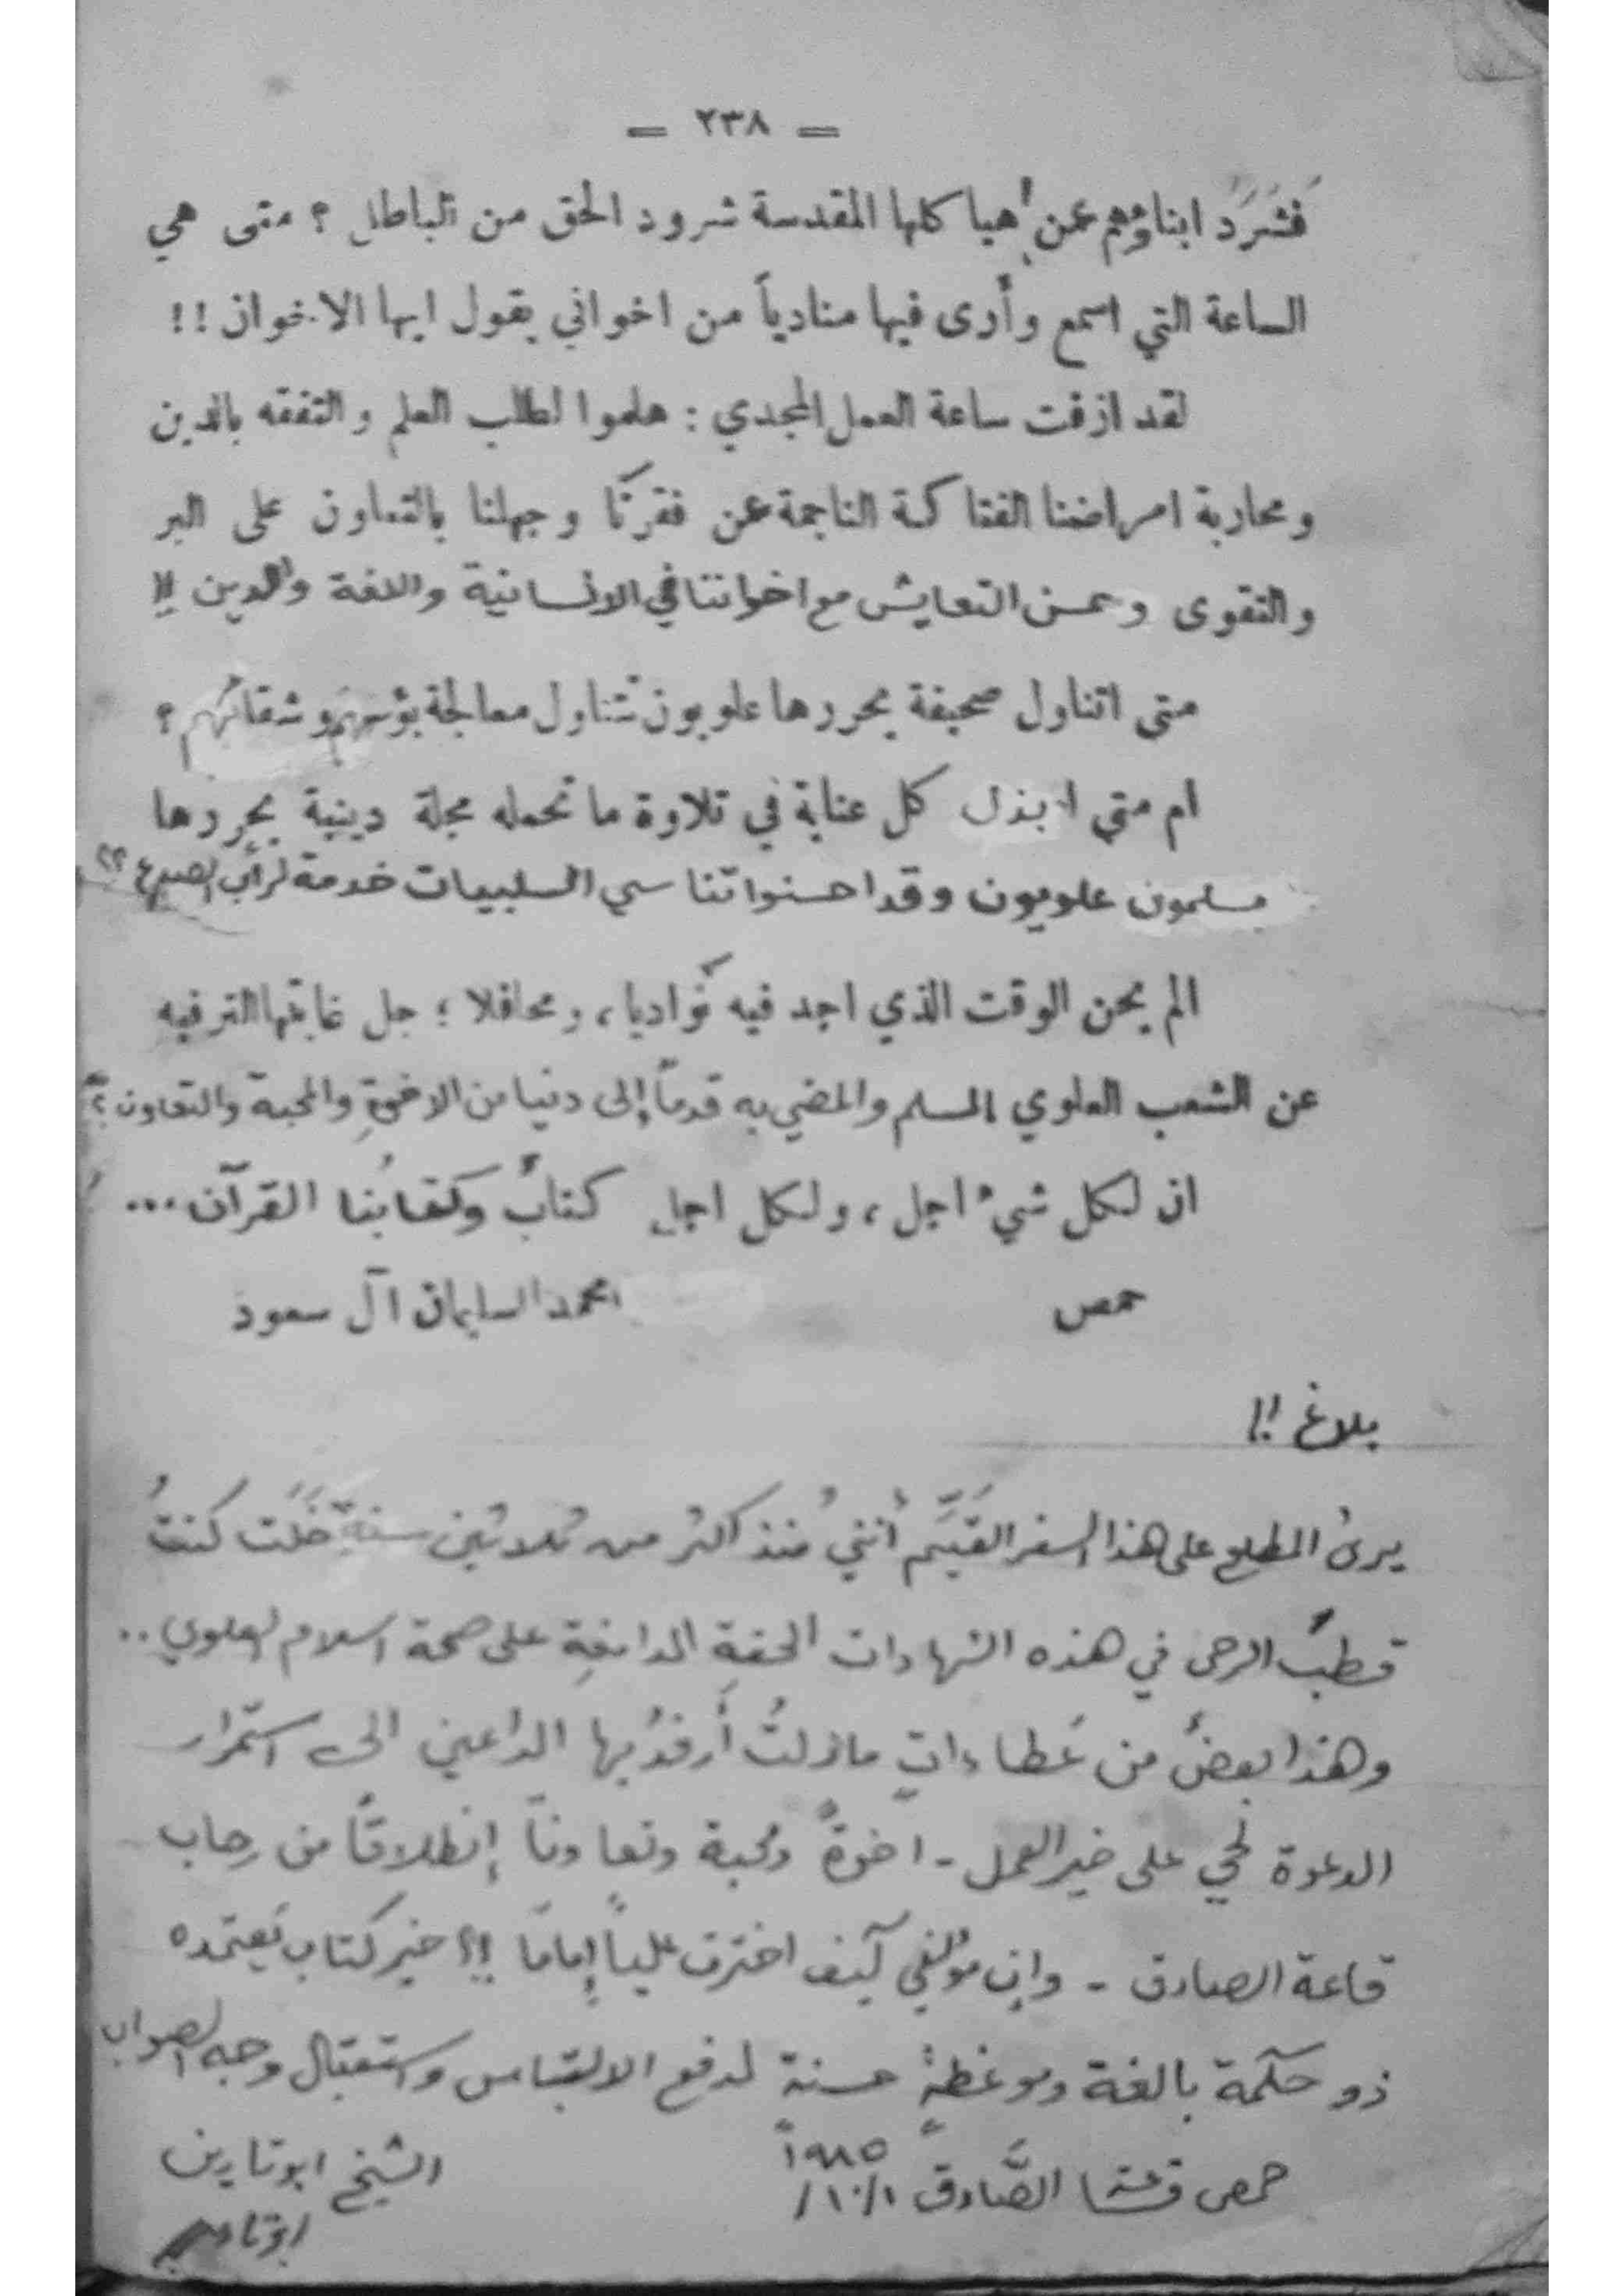 = ٢٣٨ =
فَشَرَدَ ابناؤهم عن هياكلها المقدسة شرود الحق من الباطل ؟ متى هي
الساعة التي اسمع وأرى فيها منادياً من اخواني يقول ايها الاخوان !!
لقد ازفت ساعة العمل المجدي : هلموا لطلب العلم والتفقه بالدين
ومحاربة امراضنا الفتاكة الناجمة عن فقرنا وجهلنا بالتعاون على البر
والتقوى وحسن التعايش مع اخواننا في الانسانية واللغة والدين !!
متى اتناول صحيفة يحررها علويون تتناول معالجة بؤسهم وشقائهم ؟
ام متى ابذل كل عناية في تلاوة ما تحمله مجلة دينية يحررها
مسلمون علويون وقد احسنوا تناسي السلبيات خدمة لرأب الصدع ؟؟
الم يحن الوقت الذي اجد فيه نواديا ، ومحافلا ؛ جل غايتها الترفيه
عن الشعب العلوي المسلم والمضي به قدماً إلى دنيا من الاخوةِ والمحبة والتعاون ؟
ان لكل شيء اجل ، ولكل اجل كتابٌ وكتابُنا القرآن ...
حمص محمد السليمان آل سعود
بلاغ !!
يرى المطلع على هذا السفر القَيَّم أنني مُنذ اكثر من ثلاثين سنةٍ خَلَت كنتُ
قطبُ الرحى في هذه الشهادات الحقةِ الدامغةِ على صحة اسلام العلوي ..
وهذا بعضٌ من عَطاءاتٍ مازلتُ أرفدُ بها الداعين الى استمرار
الدعوة لحي على خير العمل - اخوةً ومحبة وتعاوناً إنطلاقاً من رحاب
قاعة الصادق - وان مؤلفي كيف اخترت علياً إماماً !؟ خير كتاب يَعتمده
ذو حكمة بالغة وموعظةٍ حسنة لدفع الالتباس واستقبال وجه الصواب
حمص الصَّادق ١٠/١/ ١٩٨٥ الشيخ